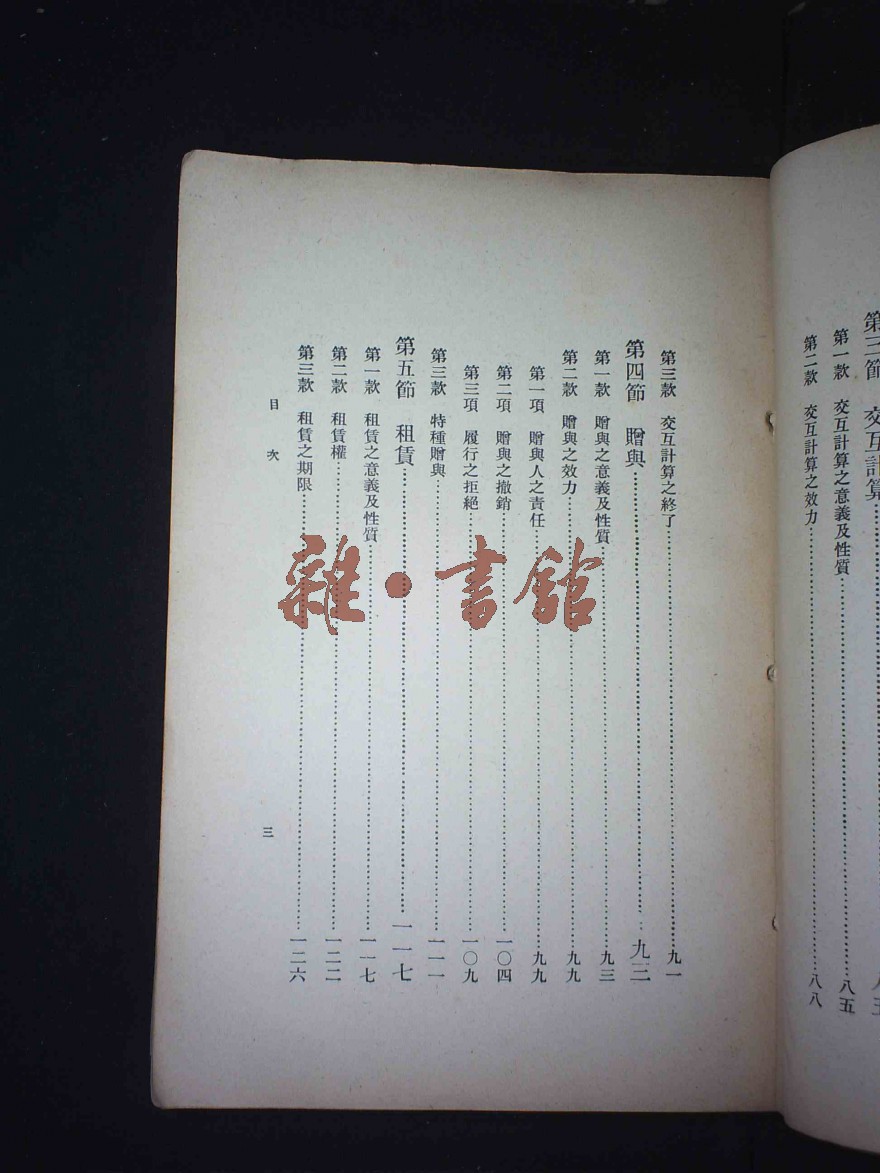 第三節 交互計算 八五
第一款 交互計算之意義及性質 八五
第二款 交互計算之效力 八八
第三款 交互計算之終了 九一
第四節 贈與 九三
第一款 贈與之意義及性質 九三
第二款 贈與之效力 九九
第一項 贈與人之責任 九九
第二項 贈與之撤銷 一〇四
第三項 履行之拒絕 一〇九
第三款 特種贈與 一一一
第五節 租賃 一一七
第一款 租賃之意義及性質 一一七
第二款 租賃權 一二二
第三款 租賃之期限 一二六
目次
三
雜·書館